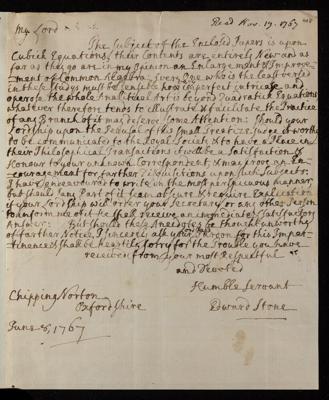 Read Nov. 19. 1767
My Lord
The Subject of the Enclosed Papers is upon
Cubick Equations; their Contents are entirely New and as
far as they go are in my Opinion an Enlargement & Improve-
ment of Common Algebra: Every One who is the least versed
in these Studys must be sensible how imperfect intricate and
operose the whole Analitical Art is beyond Quadratick Equations
Whatever therefore tends to illustrate & facilitate the Practice
of any Branch of it may deserve some Attention: Should your
Lordship upon the Perusal of this Small Treatize judge it worthy
to be communicated to the Royal Society & to have a Place in
their Philosophical Transactions it will be a Satisfaction &
Honour to your unknown Correspondent, & may prove an En-
couragement for farther Disquisitions upon such Subjects:
I have endeavoured to write in the most perspicuous manner,
but should any Part of it want a Clearer & require Explication
if your Lordship will order your Secretary or any other Person
to inform me of it he shall receive an immediate & satisfactory
Answer: But should these Anecdotes be thought unworthy
of farther Notice, I sincerely ask your Pardon for this Imper-
tinence & shall be heartily sorry for the Trouble you have
received from your most Respectful
and Devoted
Humble Servant
Edward Stone
Chipping Norton
Oxfordshire
June 8, 1767